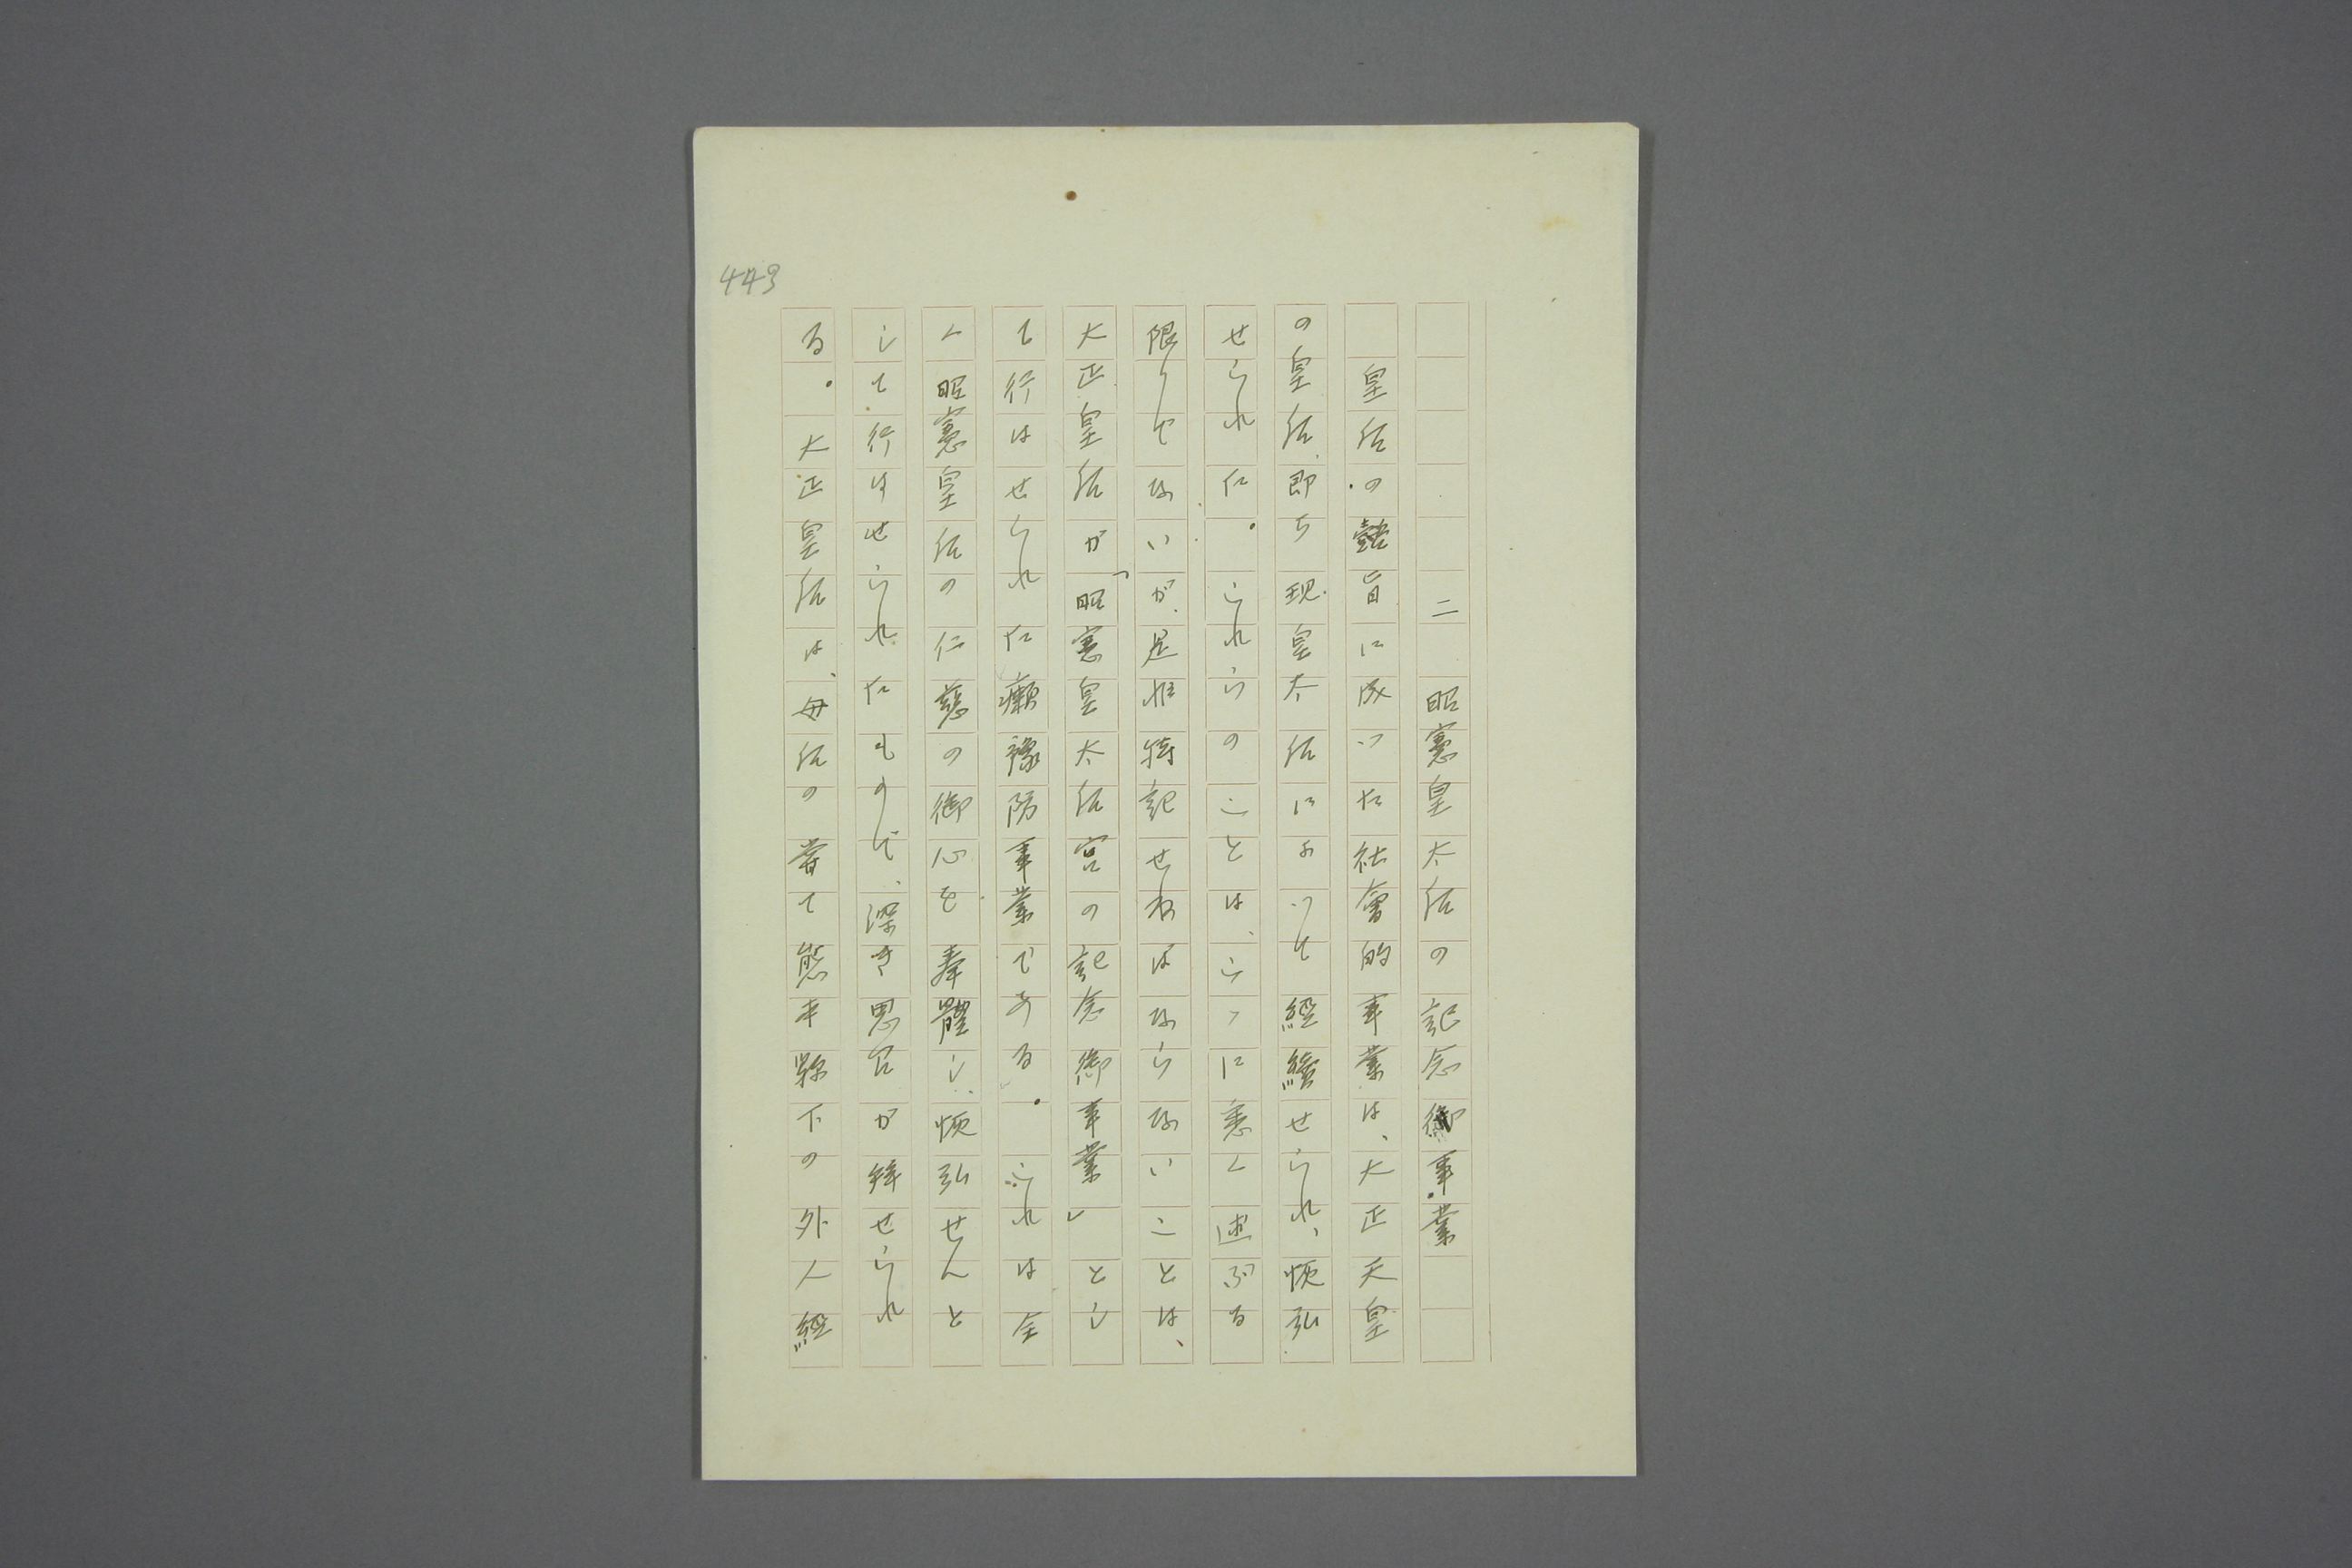 443
二 昭憲皇太后の記念御事業
皇后の懿旨に成つた社會的事業は、大正天皇
の皇后、即ち現皇太后によつて經營せられ、恢弘
せられた。これらのことは、ここに悉く述ぶる
限りでないが、是非特記せねばならないことは、
大正皇后が「昭憲皇太后宮の記念御事業」とし
て行はせられた癩豫防事業である。これは全
く昭憲皇后の仁慈の御心を奉體し、恢弘せんと
して行はせられたもので、深き思召が拜せられ
る。大正皇后は、母后の嘗て熊本縣下の外人經